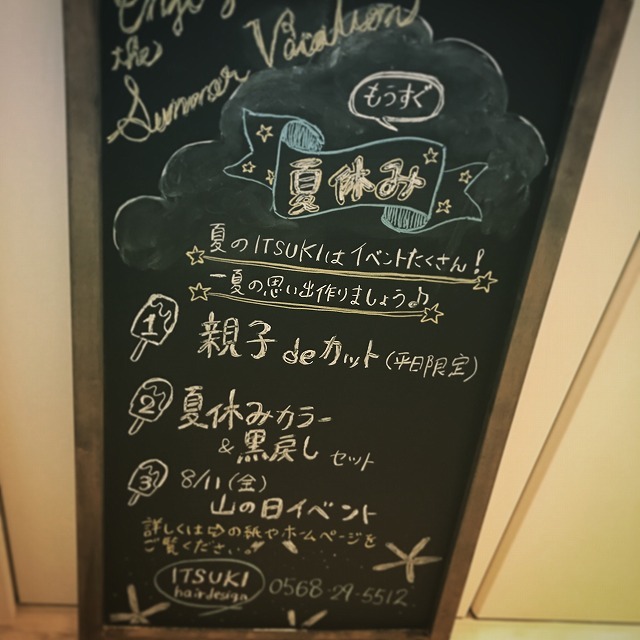 Enjoy
the
Summer Vacation
もうすぐ
夏休み
夏のITSUKIはイベントたくさん!
一夏の思い出作りましょう♪
1 親子deカット(平日限定)
2 夏休みカラー
&黒戻し セット
3 8/11(金)
山の日イベント
詳しくは⇨の紙やホームページを
ご覧ください。!!
ITSUKI
hairdesign
0568-29-5512